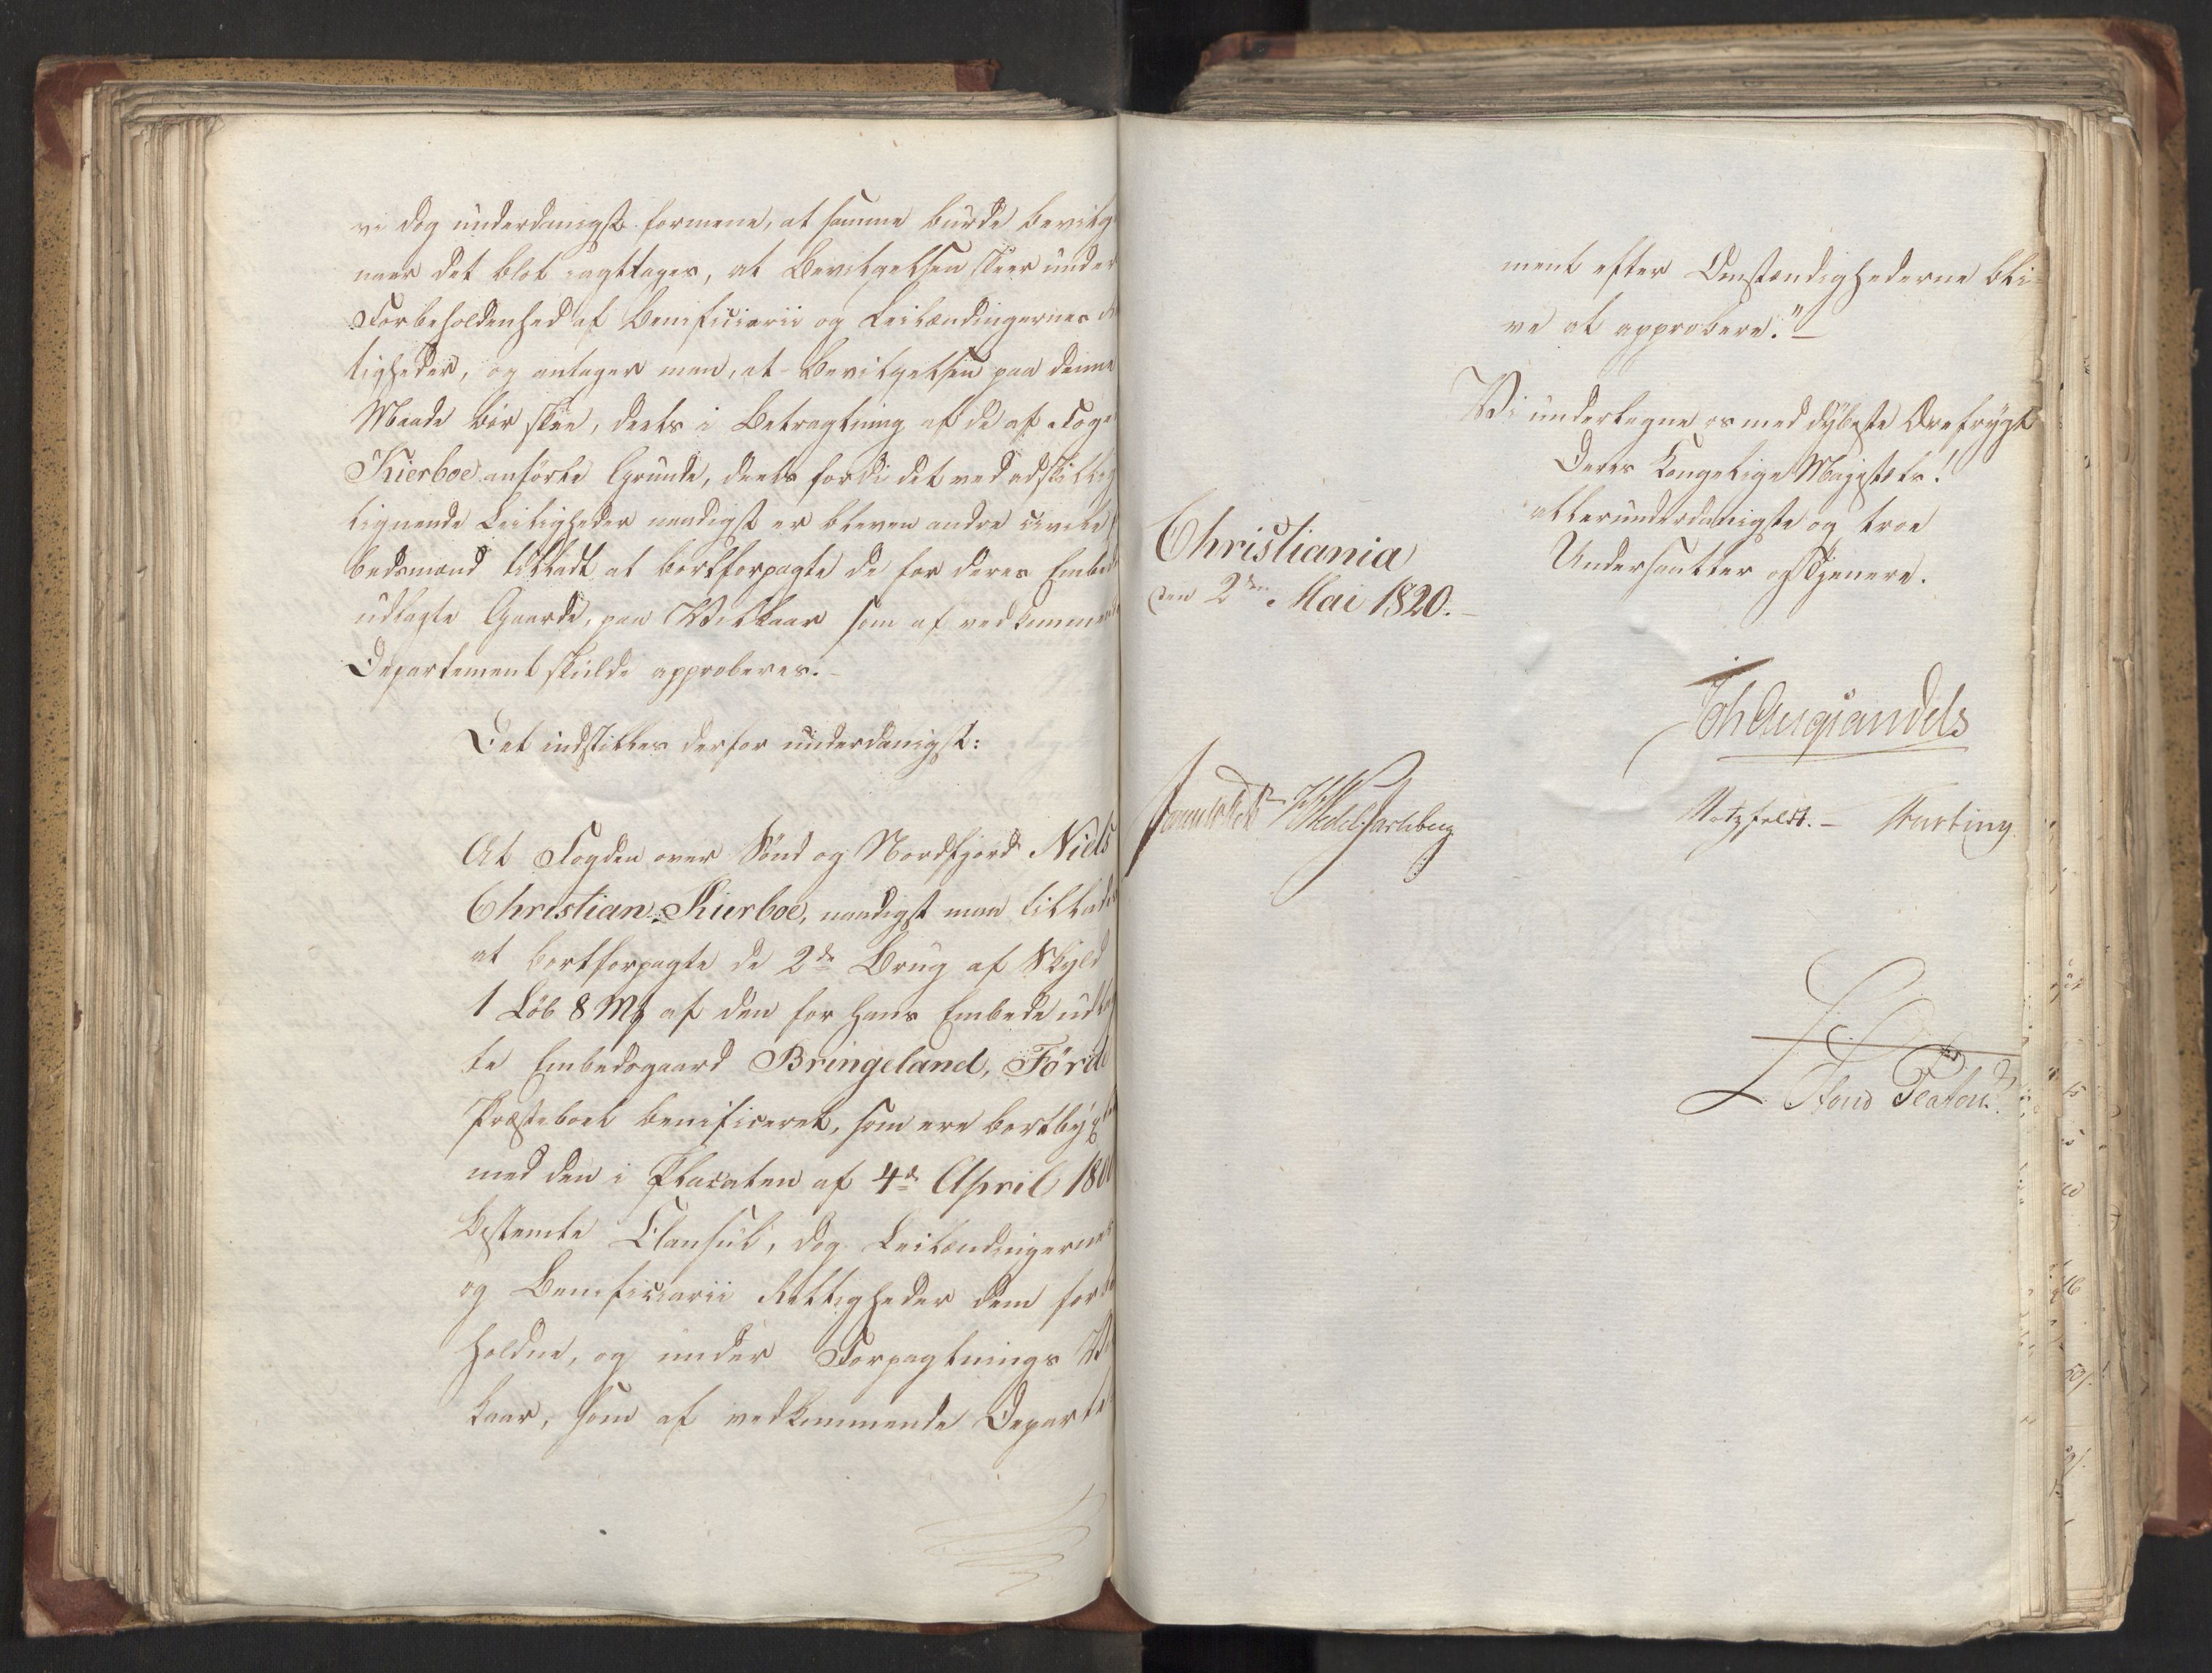 vi dog underdanigst formene, at samme burde bevilg
naar det blot iagttages, at Bevilgelsen skeer under
Forbeholdenhed af Benificiarii og Leilændingernes
tigheder, og antager man, at Bevilgelsen paa denne
Maade bör skee, deels i Betragtning af de af Foge
Kierboe anförte Grunde, deels fordi det ved adskillig
lignende Leiligheder naadigst er bleven andre civile
bedsmænd tilladt at bortforpagte de for deres Embed
udlagte Gaarde, paa Vilkaar som af vedkomme
Departement skulde approberes. -
Det indstilles derfor underdanigst:
At Fogden over Sönd og Nordfjord Niels
Christian Kierboe, naadigst maa tillades
at bortforpagte de 2de Brug af Skyld
1 Löb 8 Mk af den for hans Embede udlag
te Embedsgaard Bringeland, Förde
Præstebord benificeret, som ere bortbyg
med den i Placaten af 4de April 180
bestemte Clausul, dog Leilændingernes
og Benificiarii Rettigheder dem forbe
holdne, og under Forpagtnings Vil
kaar, som af vedkommende Departe-
ment efter Omstændighederne bli-
ve at approbere." -
Vi undertegne os med dybeste Ærefrygt
Deres Kongelige Majestæts!
allerunderdanigste og troe
Undersaatter og Tjenere.
Christiania
den 2den Mai 1820. -
Joh Aug Sandels
Sommerhielm HWedel Jarlsberg
Motzfeldt. - Krefting